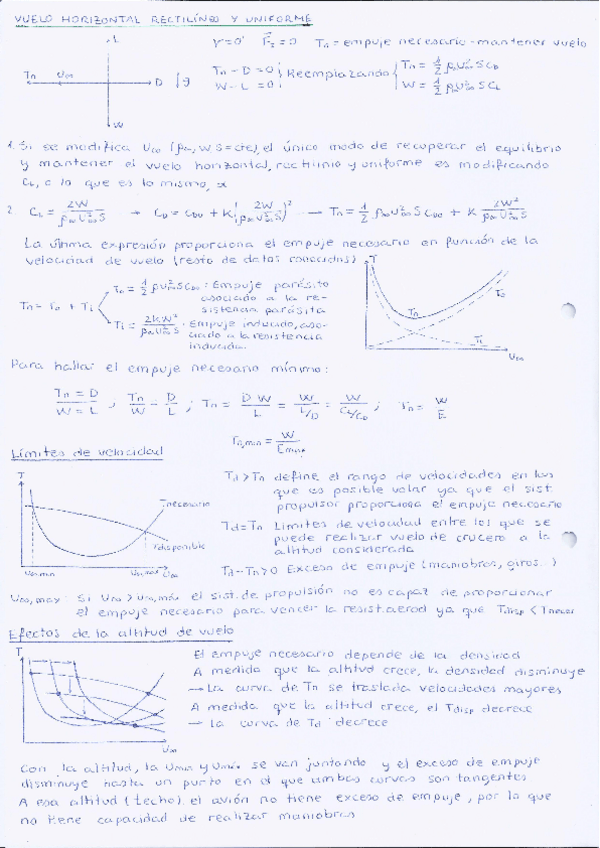 VUELO HORIZONTAL RECTILÍNEO Y UNIFORME
L
Tn U∞ D g
W
γ=0° Fz=0 Tn = empuje necesario - mantener vuelo
Tn - D = 0
W - L = 0
Reemplazando
Tn = 1/2 ρ∞ U∞² S CD
W = 1/2 ρ∞ U∞² S CL
1. Si se modifica U∞ (ρ∞, W, S = cte), el único modo de recuperar el equilibrio
y mantener el vuelo horizontal, rectilíneo y uniforme es modificando
CL, o lo que es lo mismo, α
2. CL = 2W / ρ∞ U∞² S → CD = CD0 + K (2W / ρ∞ U∞² S)² → Tn = 1/2 ρ∞ U∞² S CD0 + K 2W² / ρ∞ U∞² S
La última expresión proporciona el empuje necesario en función de la
velocidad de vuelo (resto de datos conocidos)
Tn = To + Ti
To = 1/2 ρ U∞² S CD0 : Empuje parásito
asociado a la re-
sistencia parásita
Ti = 2KW² / ρ∞ U∞² S : Empuje inducido, aso-
ciado a la resistencia
inducida.
T
Tn
To
Ti
U∞
Para hallar el empuje necesario mínimo:
Tn = D / W = L ; Tn / W = D / L ; Tn = D W / L = W / L/D = W / CL/CD ; Tn = W / E
Tn,min = W / Emax
Límites de velocidad
T
Tnecesario
Tdisponible
U∞,min U∞,max U∞
Td > Tn define el rango de velocidades en las
que es posible volar ya que el sist.
propulsor proporciona el empuje necesario
Td = Tn Límites de velocidad entre los que se
puede realizar vuelo de crucero a la
altitud considerada
Td - Tn > 0 Exceso de empuje (maniobras, giros..)
U∞,max: Si U∞ > U∞,máx el sist. de propulsión no es capaz de proporcionar
el empuje necesario para vencer la resist. aerod ya que Tdisp < Tnecer
Efectos de la altitud de vuelo
T
U∞
El empuje necesario depende de la densidad
A medida que la altitud crece, la densidad disminuye
→ La curva de Tn se traslada velocidades mayores
A medida que la altitud crece, el Tdisp decrece
→ La curva de Td decrece
Con la altitud, la Umin y Umáx se van juntando y el exceso de empuje
disminuye hasta un punto en el que ambas curvas son tangentes
A esa altitud (techo) el avión no tiene exceso de empuje, por lo que
no tiene capacidad de realizar maniobras